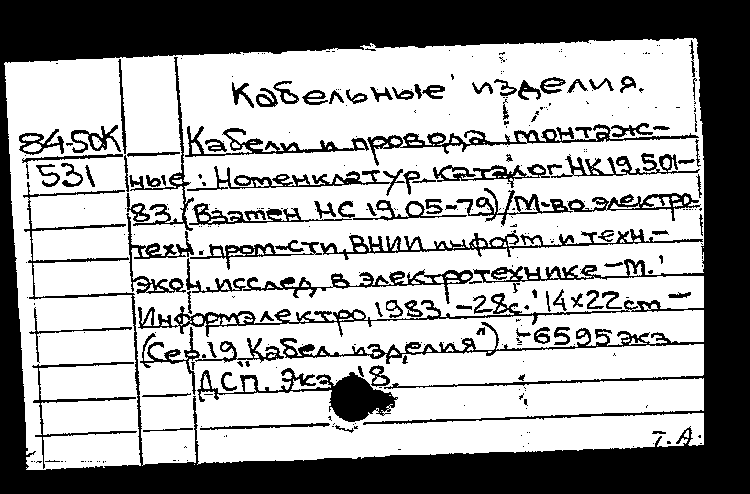 Кабельные изделия.
84-50К Кабели и провода монтаж-
531 ные: Номенклатур. каталог НК 19.501-
83. (Взамен НС 19.05-79) / М-во электро-
техн. пром-сти, ВНИИ информ. и техн.-
экон. исслед. в электротехнике. - М.:
Информэлектро, 1983. - 28с.; 14x22 cm -
(Сер. 19 "Кабел. изделия"). - 6595 экз.
ДСП. Экз. 18.
Т.А.